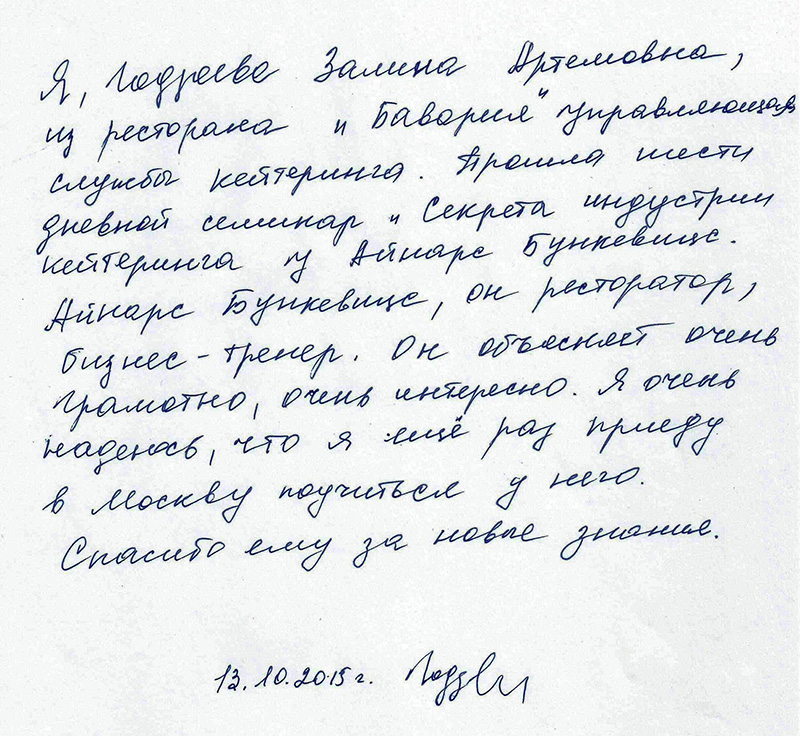 Я, Годзоева Залина Артемовна,
из ресторана „Бавария“ управляющая
службы кейтеринга. Прошла шести
дневной семинар „Секрета индустрии
кейтеринга у Айнарс Бункевищс.
Айнарс Бункевищс, он ресторатор,
бизнес-тренер. Он объясняет очень
грамотно, очень интересно. Я очень
надеюсь, что я ещё раз приеду
в Москву поучиться у него.
Спасибо ему за новые знания.
13.10.2015 г.